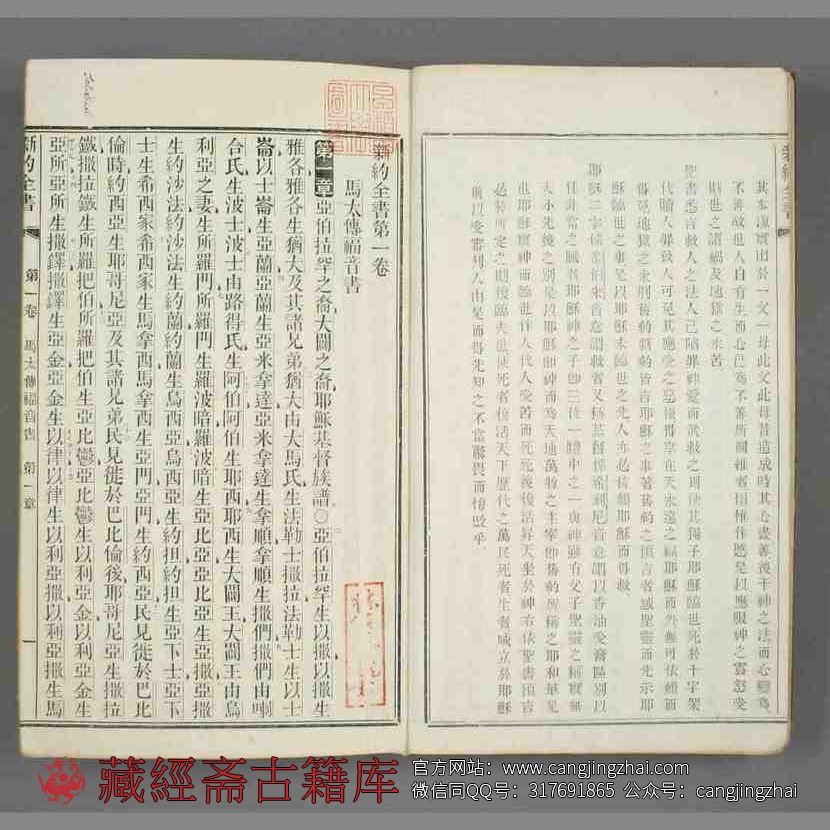 新約全書
其本源實出於一父一母此父此母昔造成時其心盡善後干神之法而心變為
不善故世人自有生而心已為不善所
則世之諸禍及地獄之永苦
聖書悉言救人之法人已陷罪神愛而欲救之則使其獨子耶穌臨世死於十字架
代贖人罪致人可免其應受之惡報得享在天永遠之福耶穌而外無可依賴而
得免地獄之永刑舊約新約皆言耶穌之事著舊約之預言者感聖靈而先示耶
穌臨世之事是以耶穌未臨世之先人亦必信賴耶穌而得救
耶穌二字係希伯來音意謂救者又稱基督係希利尼音意謂以香油受膏區別以
任此當敬者耶穌神之子即三位一體中之一與神雖有父子聖靈之稱實無
大小先後之別是以耶穌即神而為天地萬物之主宰即舊約所稱之耶和華是
也耶穌實神而臨世作人代人受苦而死死後復活昇天坐於神右依聖書預言
必於所定之期後臨夫世使死者復活天下歷代之萬民死者生者咸立於耶穌
前以受審判人由是而得先知之不當驚畏而悟改乎
新約全書第一卷
馬太傳福音書
第一章亞伯拉罕之裔大闢之裔耶穌基督族譜○亞伯拉罕生以撒以撒生
雅各雅各生猶大及其諸兄弟猶大由大馬氏生法勒士撒拉法勒士生以士
崙以士崙生亞蘭亞蘭生亞米拿達亞米拿達生拿順拿順生撒們撒們由喇
合氏生波士波士由路得氏生阿伯阿伯生耶西耶西生大闢王大闢王由烏
利亞之妻生所羅門所羅門生羅波暗羅波暗生亞比亞亞比亞生亞撒亞撒
生約沙法約沙法生約蘭約蘭生烏西亞烏西亞生約担約担生亞下士亞下
士生希西家希西家生馬拿西馬拿西生亞門亞門生約西亞民見徙於巴比
倫時約西亞生耶哥尼亞及其諸兄弟民見徙於巴比倫後耶哥尼亞生撒拉
鐵撒拉鐵生所羅把伯所羅把伯生亞比鬱亞比鬱生以利亞金以利亞金生
亞所亞所生撒鐸撒鐸生亞金亞金生以律以律生以利亞撒以利亞撒生馬
新約全書 第一卷 馬太傳福音書 第一章 一
藏經斋古籍库
官方网站：www.cangjingzhai.com
微信同QQ号：317691865 公众号：cangjingzhai